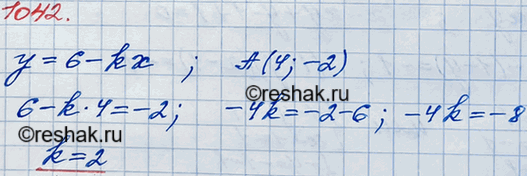 1042.
y = 6 - kx ; A(4; -2)
©reshak.ru
6 - k · 4 = -2; -4k = -2 - 6; -4k = -8
©reshak.ru
k = 2